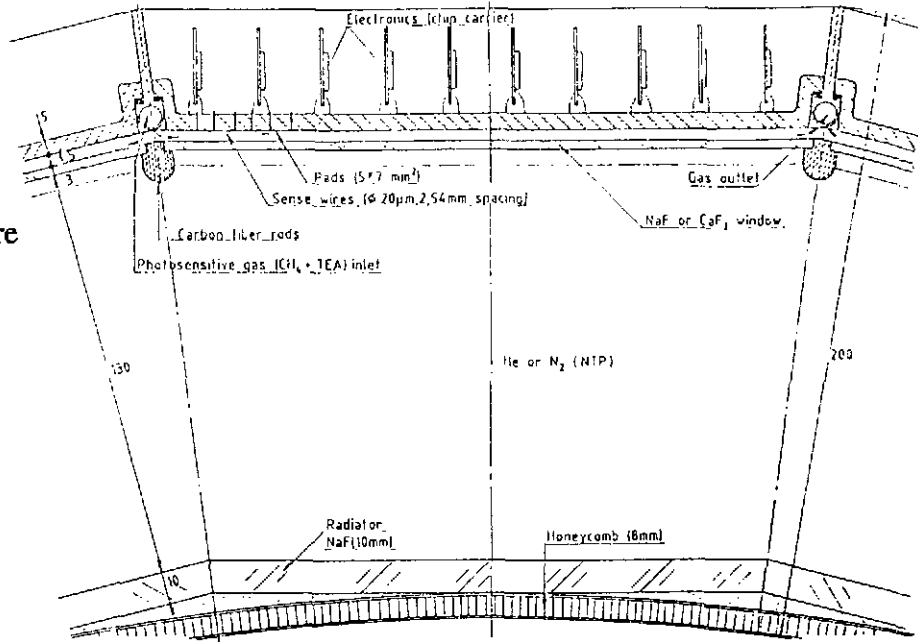 Electronics (chip carrier)
5
1,5
3
Pads (5*7 mm²)
Gas outlet
Sense wires (Φ 20µm, 2,54mm spacing)
NaF or CaF₂ window
re
Carbon fiber rods
Photosensitive gas (CH₄ + TEA) inlet
130
He or N₂ (NTP)
200
Radiator
NaF(10mm)
Honeycomb (8mm)
10